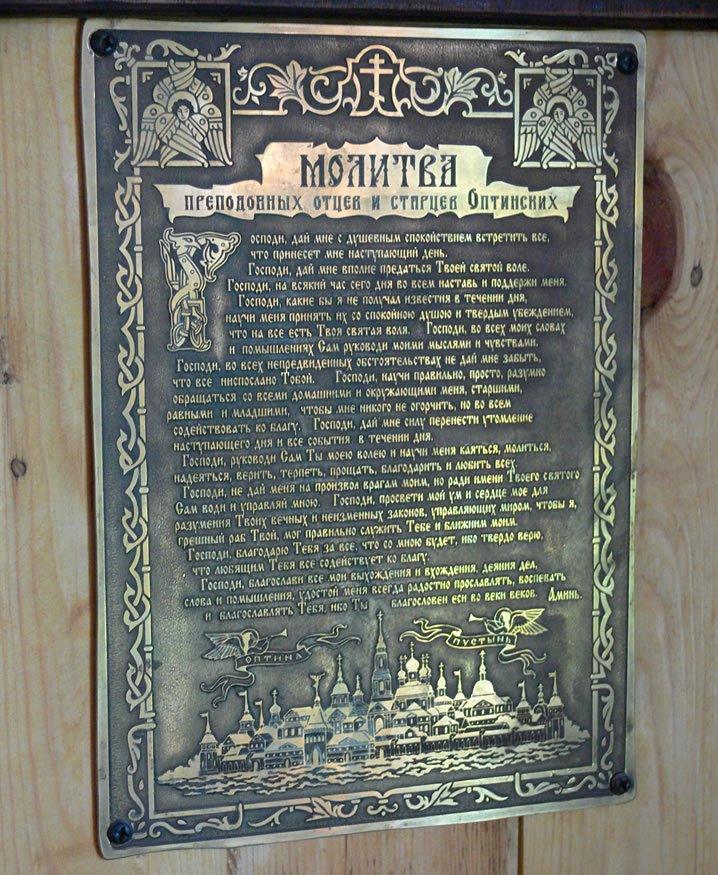 МОЛИТВА
преподобных отцев и старцев Оптинских
Господи, дай мне с душевным спокойствием встретить все,
что принесет мне наступающий день.
Господи, дай мне вполне предаться Твоей святой воле.
Господи, на всякий час сего дня во всем наставь и поддержи меня.
Господи, какие бы я не получал известия в течении дня,
научи меня принять их со спокойною душою и твердым убеждением,
что на все есть Твоя святая воля. Господи, во всех моих словах
и помышлениях Сам руководи моими мыслями и чувствами.
Господи, во всех непредвиденных обстоятельствах не дай мне забыть,
что все ниспослано Тобой. Господи, научи правильно, просто, разумно
обращаться со всеми домашними и окружающими меня, старшими,
равными и младшими, чтобы мне никого не огорчить, но во всем
содействовать ко благу. Господи, дай мне силу перенести утомление
наступающего дня и все события в течении дня.
Господи, руководи Сам Ты моею волею и научи меня каяться, молиться,
надеяться, верить, терпеть, прощать, благодарить и любить всех.
Господи, не дай меня на произвол врагам моим, но ради имени Твоего святого
Сам води и управляй мною. Господи, просвети мой ум и сердце мое для
разумения Твоих вечных и неизменных законов, управляющих миром, чтобы я,
грешный раб Твой, мог правильно служить Тебе и ближним моим.
Господи, благодарю Тебя за все, что со мною будет, ибо твердо верю,
что любящим Тебя все содействует ко благу.
Господи, благослови все мои выхождения и вхождения, деяния дел,
слова и помышления, удостой меня всегда радостно прославлять, воспевать
и благославлять Тебя, ибо Ты благословен еси во веки веков. Аминь.
ОПТИНА ПУСТЫНЬ